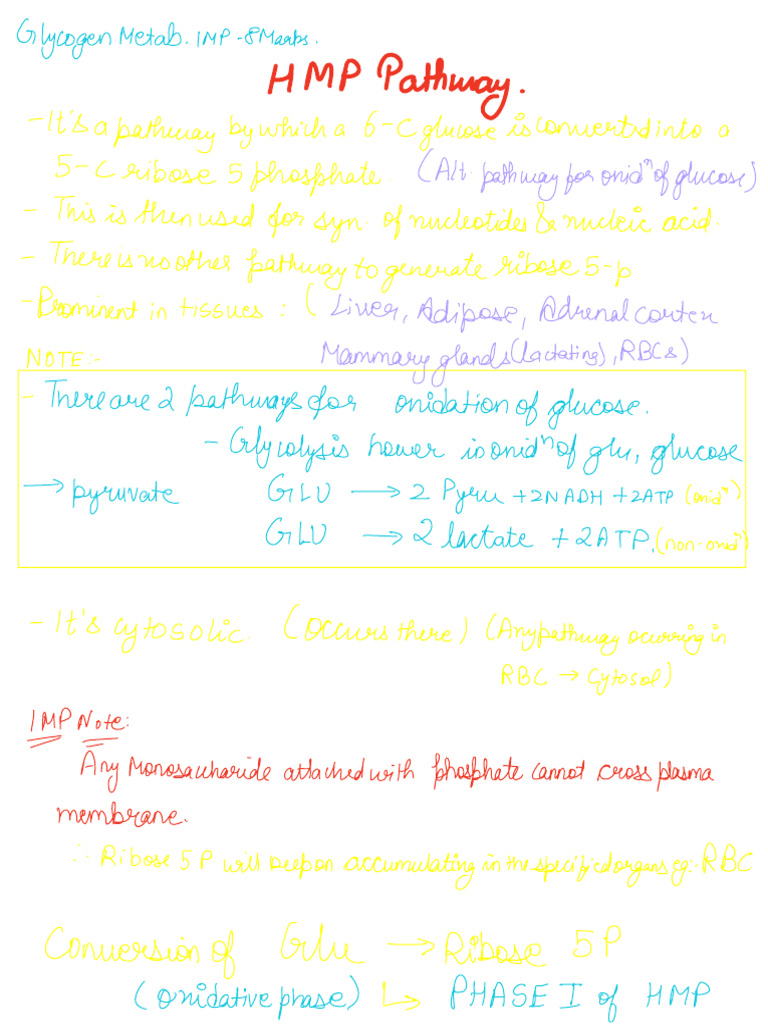 Glycogen Metab. IMP - 8 Marks.
HMP Pathway.
- It's a pathway by which a 6-C glucose is converted into a
5-C ribose 5 phosphate. (Alt. pathway for oxidⁿ of glucose)
- This is then used for syn. of nucleotides & nucleic acid.
- There is no other pathway to generate ribose 5-p
- Prominent in tissues : ( Liver, Adipose, Adrenal cortex
Mammary glands (lactating), RBCs)
NOTE:-
- There are 2 pathways for oxidation of glucose.
- Glycolysis hower is oxidⁿ of glu, glucose
→ pyruvate GLU → 2 Pyru + 2NADH + 2ATP (oxidⁿ)
GLU → 2 lactate + 2ATP. (non-oxidⁿ)
- It's cytosolic. (occurs there) (Any pathway ocurring in
RBC → Cytosol)
IMP Note:
Any Monosaccharide attached with phosphate cannot cross plasma
membrane.
∴ Ribose 5P will keep on accumulating in the specified organs eg:- RBC
Conversion of Glu → Ribose 5P
(oxidative phase) ↳ PHASE I of HMP